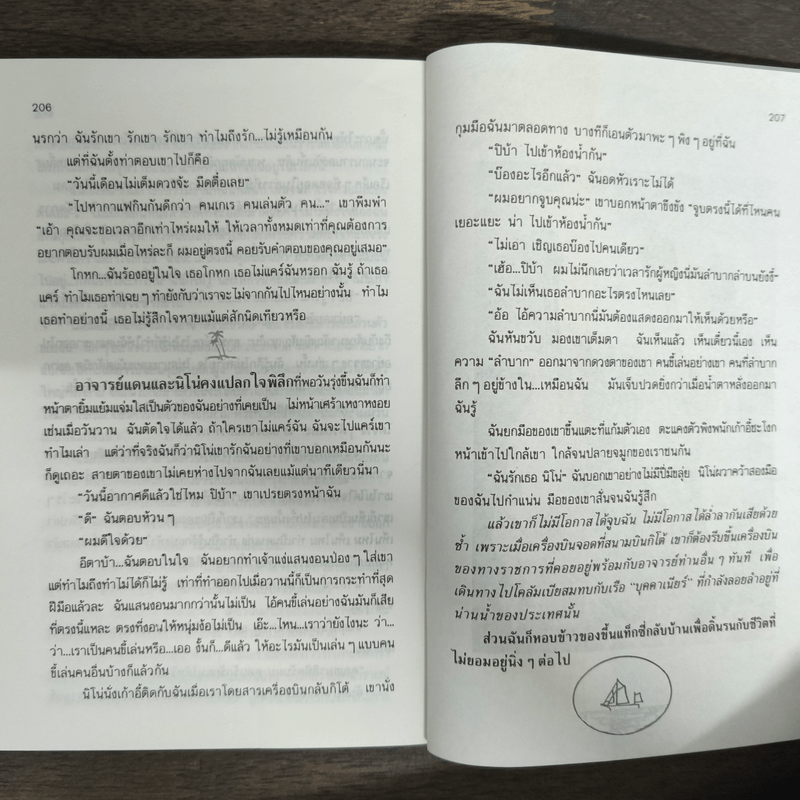 206
นรกว่า ฉันรักเขา รักเขา รักเขา ทำไมถึงรัก...ไม่รู้เหมือนกัน
แต่ที่ฉันตั้งท่าตอบเขาไปก็คือ
“วันนี้เดือนไม่เต็มดวงจ้ะ มืดตื๋อเลย”
“ไปหากาแฟกินกันดีกว่า คนเกเร คนเล่นตัว คน...” เขาพึมพำ
“เอ้า คุณจะขอเวลาอีกเท่าไหร่ผมให้ ให้เวลาทั้งหมดเท่าที่คุณต้องการ
อยากตอบรับผมเมื่อไหร่ละก็ ผมอยู่ตรงนี้ คอยรับคำตอบของคุณอยู่เสมอ”
โกหก...ฉันร้องอยู่ในใจ เธอโกหก เธอไม่แคร์ฉันหรอก ฉันรู้ ถ้าเธอ
แคร์ ทำไมเธอทำเฉย ๆ ทำยังกับว่าเราจะไม่จากกันไปไหนอย่างนั้น ทำไม
เธอทำอย่างนี้ เธอไม่รู้สึกใจหายแม้แต่สักนิดเทียวหรือ
อาจารย์แดนและนิโน่คงแปลกใจพิลึกที่พอวันรุ่งขึ้นฉันก็ทำ
หน้าตายิ้มแย้มแจ่มใสเป็นตัวของฉันอย่างที่เคยเป็น ไม่หน้าเศร้าเหงาหงอย
เช่นเมื่อวันวาน ฉันตัดใจได้แล้ว ถ้าใครเขาไม่แคร์ฉัน ฉันจะไปแคร์เขา
ทำไมเล่า แต่ว่าที่จริงฉันก็ว่านิโน่เขารักฉันอย่างที่เขาบอกเหมือนกันนะ
ก็ดูเถอะ สายตาของเขาไม่เคยห่างไปจากฉันเลยแม้แต่นาทีเดียวนี่นา
“วันนี้อากาศดีแล้วใช่ไหม ปีบ้า” เขาเปรยตรงหน้าฉัน
“ดี” ฉันตอบห้วน ๆ
“ผมดีใจด้วย”
อีตาบ้า...ฉันตอบในใจ ฉันอยากทำเจ้าแง่แสนงอนป่อง ๆ ใส่เขา
แต่ทำไมถึงทำไม่ได้ก็ไม่รู้ เท่าที่ทำออกไปเมื่อวานนี้ก็เป็นการกระทำที่สุด
ฝีมือแล้วละ ฉันแสนงอนมากกว่านั้นไม่เป็น ไอ้คนขี้เล่นอย่างฉันมันก็เสีย
ที่ตรงนี้แหละ ตรงที่งอนให้หนุ่มง้อไม่เป็น เอ๊ะ...ไหน...เราว่ายังไงนะ ว่า...
ว่า...เราเป็นคนขี้เล่นหรือ...เออ งั้นก็...ดีแล้ว ให้อะไรมันเป็นเล่น ๆ แบบคน
ขี้เล่นคนอื่นบ้างก็แล้วกัน
นิโน่นั่งเก้าอี้ติดกับฉันเมื่อเราโดยสารเครื่องบินกลับกิโต้ เขานั่ง
207
กุมมือฉันมาตลอดทาง บางทีก็เอนตัวมาพะ ๆ พิง ๆ อยู่ที่ฉัน
“ปีบ้า ไปเข้าห้องน้ำกัน”
“บ๊องอะไรอีกแล้ว” ฉันอดหัวเราะไม่ได้
“ผมอยากจูบคุณน่ะ” เขาบอกหน้าตาขึงขัง “จูบตรงนี้ได้ที่ไหนคน
เยอะแยะ น่า ไปเข้าห้องน้ำกัน”
“ไม่เอา เชิญเธอบ๊องไปคนเดียว”
“เฮ้อ...ปีบ้า ผมไม่นึกเลยว่าเวลารักผู้หญิงนี่มันลำบากลำบนยังงี้”
“ฉันไม่เห็นเธอลำบากอะไรตรงไหนเลย”
“อ้อ ไอ้ความลำบากนี่มันต้องแสดงออกมาให้เห็นด้วยหรือ”
ฉันหันขวับ มองเขาเต็มตา ฉันเห็นแล้ว เห็นเดี๋ยวนี้เอง เห็น
ความ “ลำบาก” ออกมาจากดวงตาของเขา คนขี้เล่นอย่างเขา คนที่ลำบาก
ลึก ๆ อยู่ข้างใน...เหมือนฉัน มันเจ็บปวดยิ่งกว่าเมื่อน้ำตาหลั่งออกมา
ฉันรู้
ฉันยกมือของเขาขึ้นแตะที่แก้มตัวเอง ตะแคงตัวพิงพนักเก้าอี้ชะโงก
หน้าเข้าไปใกล้เขา ใกล้จนปลายจมูกของเราชนกัน
“ฉันรักเธอ นิโน่” ฉันบอกเขาอย่างไม่มีปี่มีขลุ่ย นิโน่ผวาคว้าสองมือ
ของฉันไปกำแน่น มือของเขาสั่นจนฉันรู้สึก
แล้วเขาก็ไม่มีโอกาสได้จูบฉัน ไม่มีโอกาสได้ล่ำลากันเสียด้วย
ซ้ำ เพราะเมื่อเครื่องบินจอดที่สนามบินกิโต้ เขาก็ต้องรีบขึ้นเครื่องบิน
ของทางราชการที่คอยอยู่พร้อมกับอาจารย์ท่านอื่น ๆ ทันที เพื่อ
เดินทางไปโคลัมเบียสมทบกับเรือ “บุคคาเนียร์” ที่กำลังลอยลำอยู่ที่
น่านน้ำของประเทศนั้น
ส่วนฉันก็หอบข้าวของขึ้นแท็กซี่กลับบ้านเพื่อดิ้นรนกับชีวิตที่
ไม่ยอมอยู่นิ่ง ๆ ต่อไป